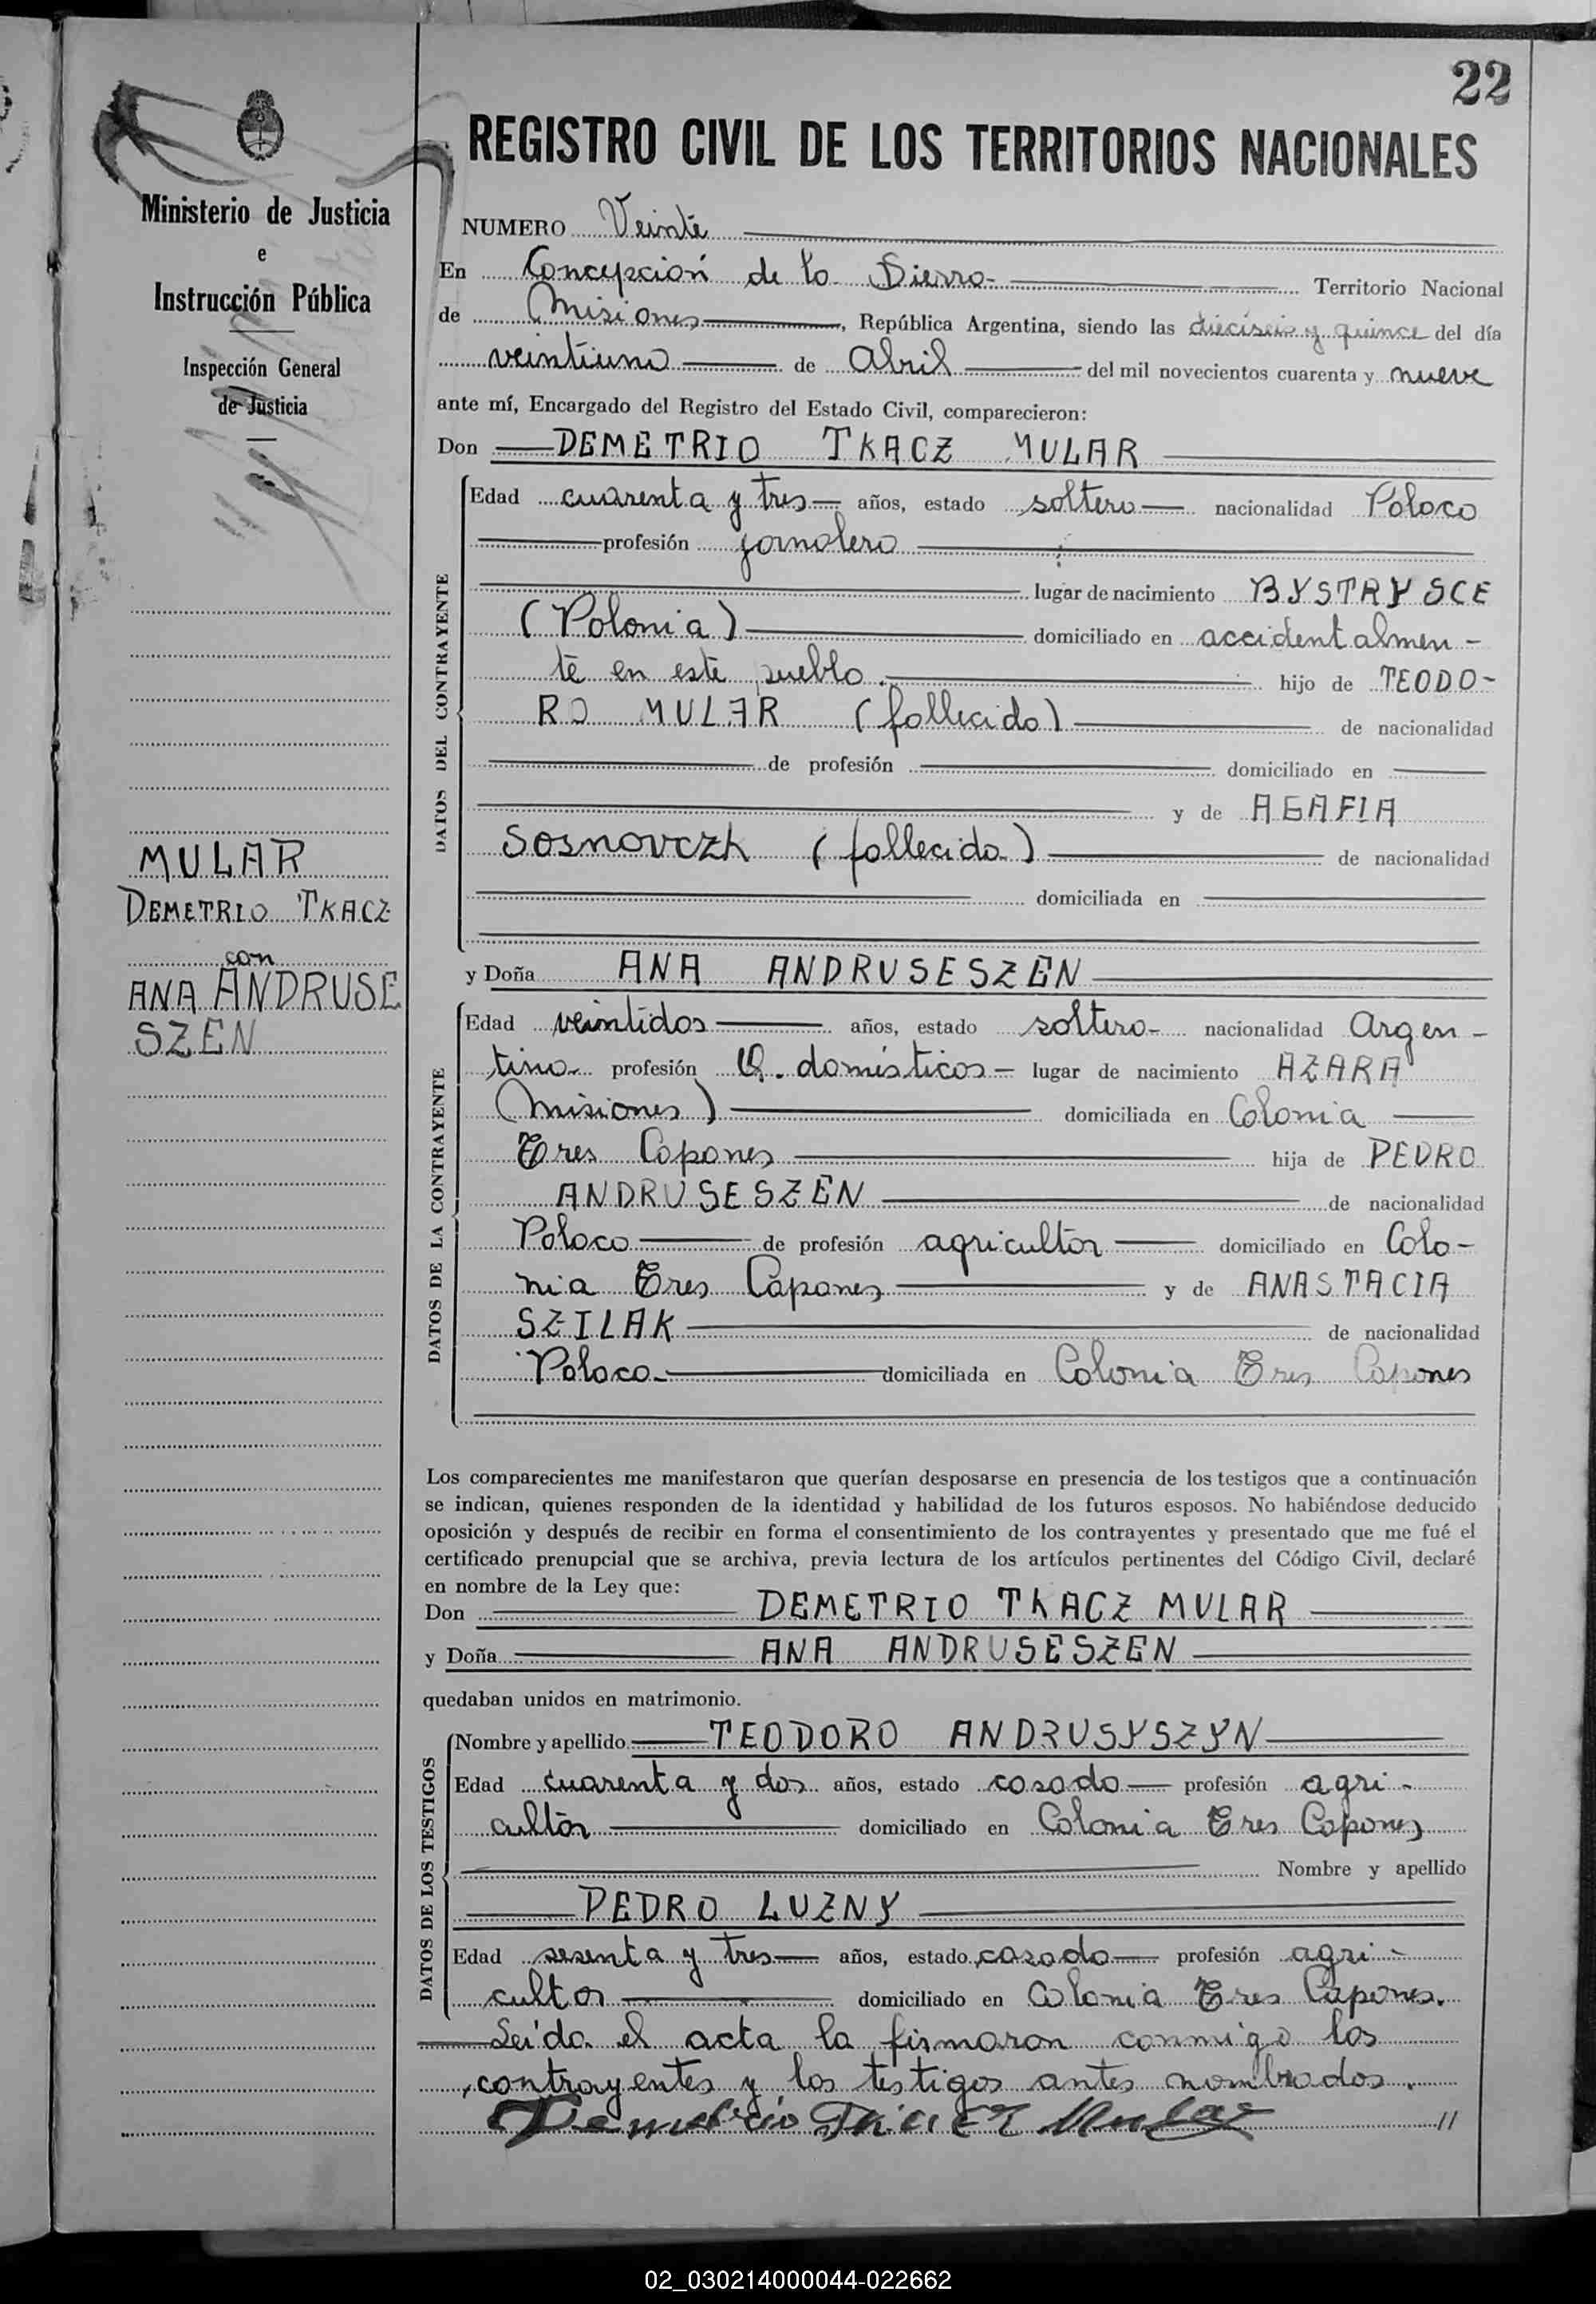 22
Ministerio de Justicia
e
Instrucción Pública
Inspección General
de Justicia
MULAR
DEMETRIO TKACZ
con
ANA ANDRUSE
SZEN
REGISTRO CIVIL DE LOS TERRITORIOS NACIONALES
NUMERO Veinte
En Concepción de la Sierra Territorio Nacional
de Misiones, República Argentina, siendo las dieciseis y quince del día
veintiuno de Abril del mil novecientos cuarenta y nueve
ante mí, Encargado del Registro del Estado Civil, comparecieron:
Don DEMETRIO TKACZ MULAR
DATOS DEL CONTRAYENTE
Edad cuarenta y tres años, estado soltero nacionalidad Polaco
profesión jornalero
lugar de nacimiento BYSTRYSCE
(Polonia) domiciliado en accidentalmen-
te en este pueblo. hijo de TEODO-
RO MULAR (fallecido) de nacionalidad
de profesión domiciliado en
y de AGAFIA
Sosnovczk (fallecida) de nacionalidad
domiciliada en
y Doña ANA ANDRUSESZEN
DATOS DE LA CONTRAYENTE
Edad veintidos años, estado soltera nacionalidad Argen-
tina profesión Q. domésticos lugar de nacimiento AZARA
(Misiones) domiciliada en Colonia
Tres Capones hija de PEDRO
ANDRUSESZEN de nacionalidad
Polaco de profesión agricultor domiciliado en Colo-
nia Tres Capones y de ANASTACIA
SZILAK de nacionalidad
Polaca domiciliada en Colonia Tres Capones
Los comparecientes me manifestaron que querían desposarse en presencia de los testigos que a continuación
se indican, quienes responden de la identidad y habilidad de los futuros esposos. No habiéndose deducido
oposición y después de recibir en forma el consentimiento de los contrayentes y presentado que me fué el
certificado prenupcial que se archiva, previa lectura de los artículos pertinentes del Código Civil, declaré
en nombre de la Ley que:
Don DEMETRIO TKACZ MULAR
y Doña ANA ANDRUSESZEN
quedaban unidos en matrimonio.
DATOS DE LOS TESTIGOS
Nombre y apellido TEODORO ANDRUSYSZYN
Edad cuarenta y dos años, estado casado profesión agri-
cultor domiciliado en Colonia Tres Capones
Nombre y apellido
PEDRO LUZNY
Edad sesenta y tres años, estado casado profesión agri-
cultor domiciliado en Colonia Tres Capones.
Leída el acta la firmaron conmigo los
contrayentes y los testigos antes nombrados.
Demetrio Tkacz Mular //
02_030214000044-022662